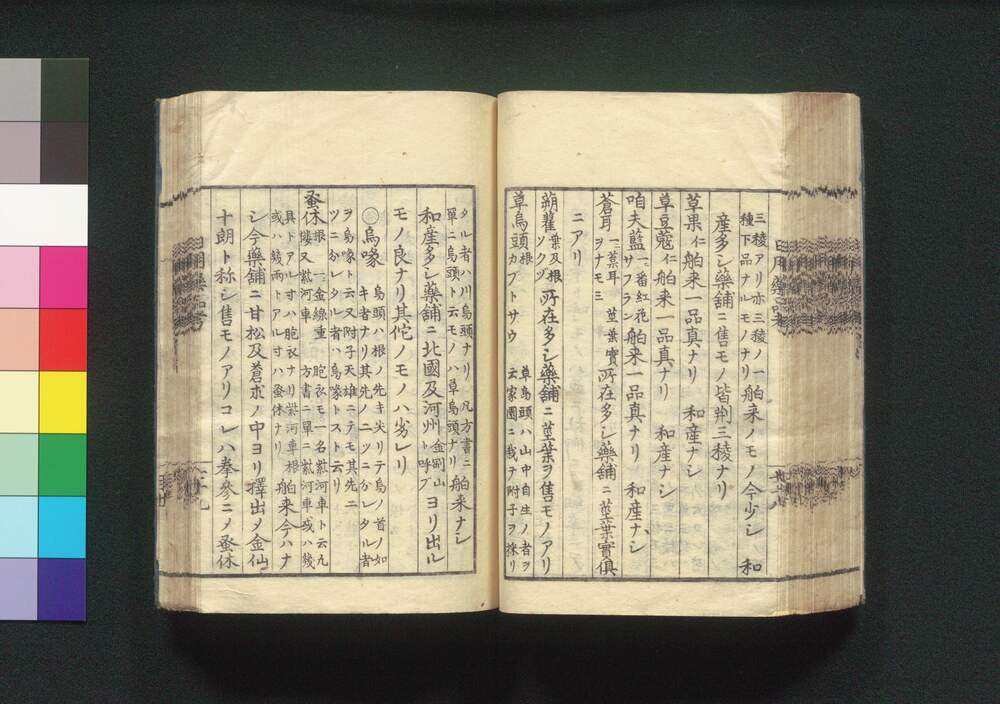 三稜アリ亦三稜ノ一 舶来ノモノ今少シ 和
種下品ナルモノナリ
産多シ藥舗ニ售モノ皆荊三稜ナリ
草果 仁 舶来一品真ナリ 和産ナシ
草豆蔲 仁 舶来一品真ナリ 和産ナシ
咱夫藍 一、番紅花 サフラン 舶来一品真ナリ 和産ナシ
蒼耳 一、葈耳 ヲナモミ 莖葉實 所在多シ藥舗ニ莖葉實俱
ニアリ
蒴藋 葉及根 ソクヅ 所在多シ藥舗ニ莖葉ヲ售モノアリ
草烏頭 根 カブトサウ 草烏頭ハ山中自生ノ者ヲ
云家園ニ栽ヲ附子ヲ採リ
タル者ハ川烏頭ナリ 凡方書ニ 舶来ナシ
單ニ烏頭ト云モノハ草烏頭ナリ
和産多シ藥舗ニ北國及河州 金剛山ト呼ブ ヨリ出ル
モノ良ナリ其佗ノモノハ劣レリ
〇烏喙 烏頭ハ根ノ先キ尖リテ烏ノ首ノ如
キ者ナリ其先ノニツニ分レタル者
ヲ烏喙ト云又附子天雄ニテモ其先ニ
ツニ分レタル者ハ烏喙ト云リ
蚤休 根 一、金線重樓 又紫河車 胞衣モ一名紫河車ト云凡
方書ニ單ニ紫河車或ハ幾
具トアル寸ハ胞衣ナリ紫河車根 舶来今ハナ
或ハ幾兩トアル寸ハ蚤休ナリ
シ今藥舗ニ甘松及蒼朮ノ中ヨリ擇出メ金仙
十朗ト称シ售モノアリコレハ拳參ニメ蚤休